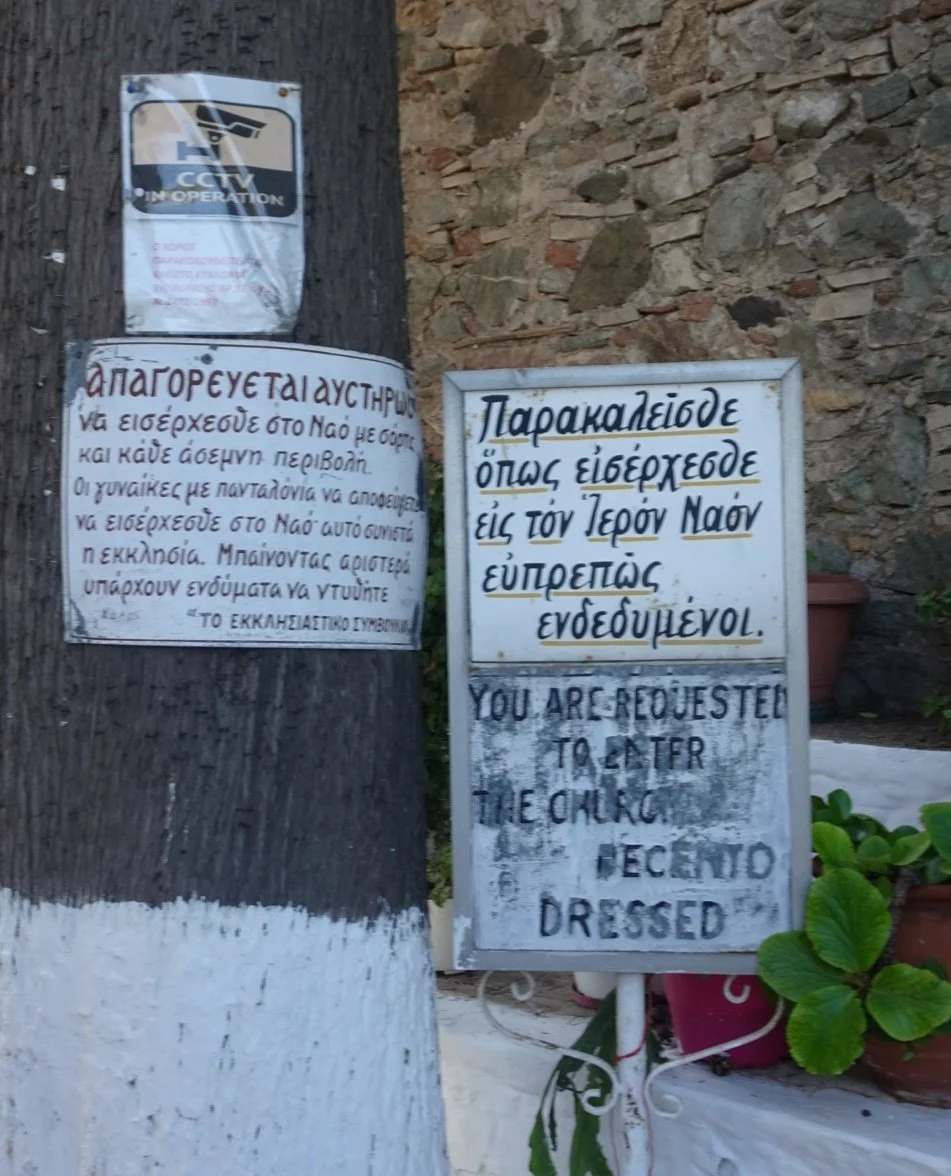 CCTV
IN OPERATION
Ο ΧΩΡΟΣ
ΑΠΑΓΟΡΕΥΕΤΑΙ ΑΥΣΤΗΡΩΣ
νά εισέρχεσθε στο Ναό με σόρτς
και κάθε άσεμνη περιβολή.
Οι γυναίκες με πανταλόνια να αποφεύγετε
να εισέρχεσθε στο Ναό αυτό συνιστά
η εκκλησία. Μπαίνοντας αριστερά
υπάρχουν ενδύματα να ντυθήτε
"ΤΟ ΕΚΚΛΗΣΙΑΣΤΙΚΟ
Παρακαλεῖσθε
ὅπως εἰσέρχεσθε
εἰς τόν Ἱερόν Ναόν
εὐπρεπῶς
ἐνδεδυμένοι.
YOU ARE REQUESTED
TO ENTER
THE CHURC
DECENTO
DRESSED